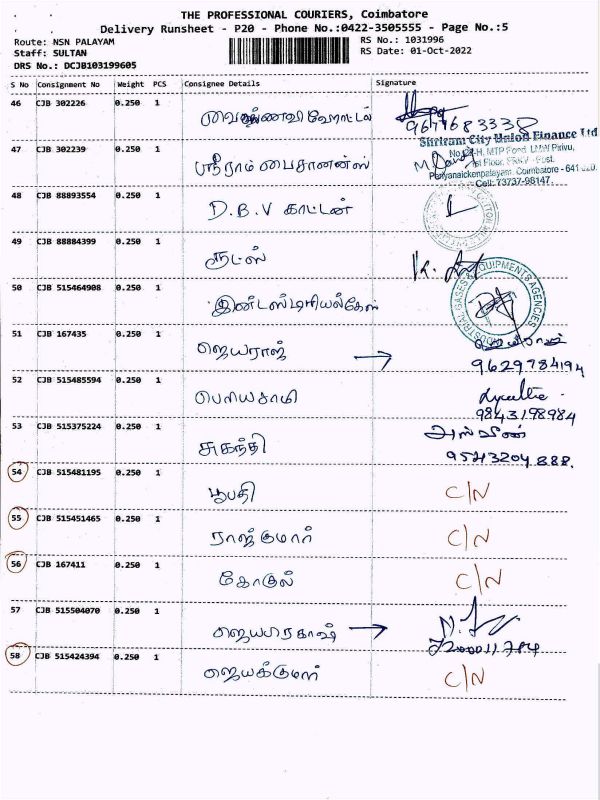 THE PROFESSIONAL COURIERS, Coimbatore
Delivery Runsheet - P20 - Phone No.:0422-3505555 - Page No.:5
Route: NSN PALAYAM
RS No.: 1031996
Staff: SULTAN
RS Date: 01-Oct-2022
DRS No.: DCJB103199605
S No Consignment No Weight PCS Consignee Details Signature
46 CJB 302226 0.250 1 வைஷ்ணவி ஹோட்டல்
9677683338
47 CJB 302239 0.250 1 ஸ்ரீராம் பைசானன்ஸ்
Shriram City Union Finance Ltd
1st Floor,
Periyanaickenpalayam, Coimbatore - 641 020.
Cell: 73737-98147.
48 CJB 88893554 0.250 1 D.B.V காட்டன்
49 CJB 88884399 0.250 1 ரூட்ஸ்
50 CJB 515464908 0.250 1 இண்டஸ்டிரியல்கேஸ்
INDUSTRIAL GASES & EQUIPMENTS AGENCIES
51 CJB 167435 0.250 1 ஜெயராஜ் →
9629784194
52 CJB 515485594 0.250 1 பெரியசாமி
9843198984
53 CJB 515375224 0.250 1 சுகந்தி அஸ்வின்
9543204888.
54 CJB 515481195 0.250 1 பூபதி C/N
55 CJB 515451465 0.250 1 ராஜ்குமார் C/N
56 CJB 167411 0.250 1 கோகுல் C/N
57 CJB 515504070 0.250 1 ஜெயபிரகாஷ் →
7200011784
58 CJB 515424394 0.250 1 ஜெயக்குமார் C/N